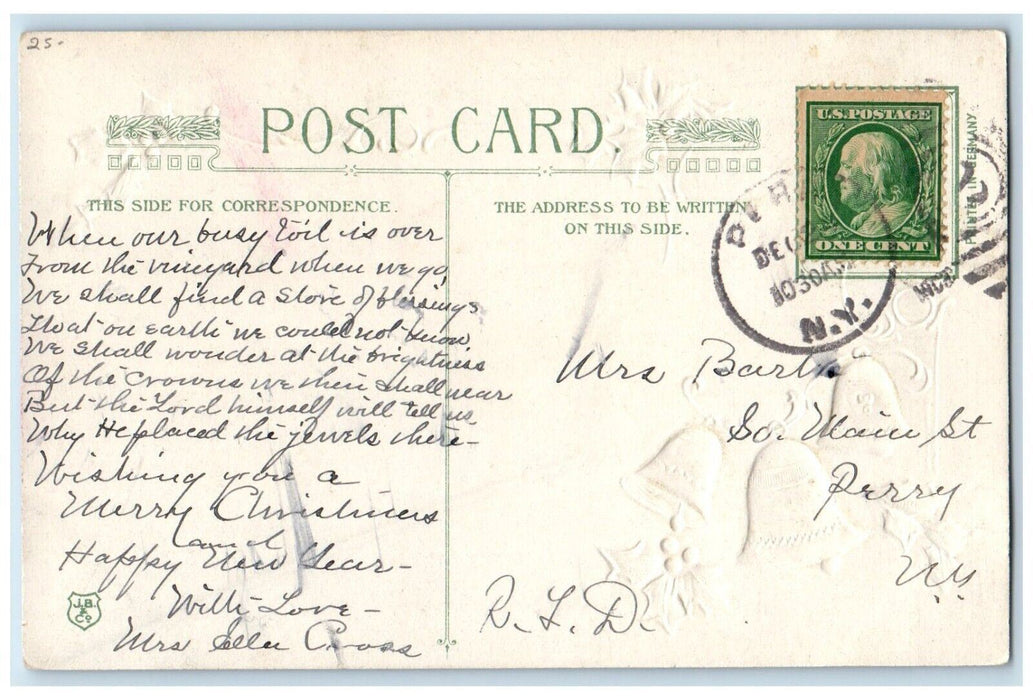 25-
POST CARD.
THIS SIDE FOR CORRESPONDENCE.
THE ADDRESS TO BE WRITTEN
ON THIS SIDE.
U.S. POSTAGE
ONE CENT
PRINTED IN GERMANY
DEC
1030AM
N.Y.
When our busy toil is over
From the vineyard when we go
We shall find a store of blessings
That on earth we could not know
We shall wonder at the brightness
Of the crowns we then shall wear
But the Lord himself will tell us
Why He placed the jewels there-
Wishing you a
Merry Christmas
and
Happy New Year-
With Love-
Mrs Ella Cross
J.B.
& Co
Mrs
So. Main St
Perry
N.Y.
R.F.D.